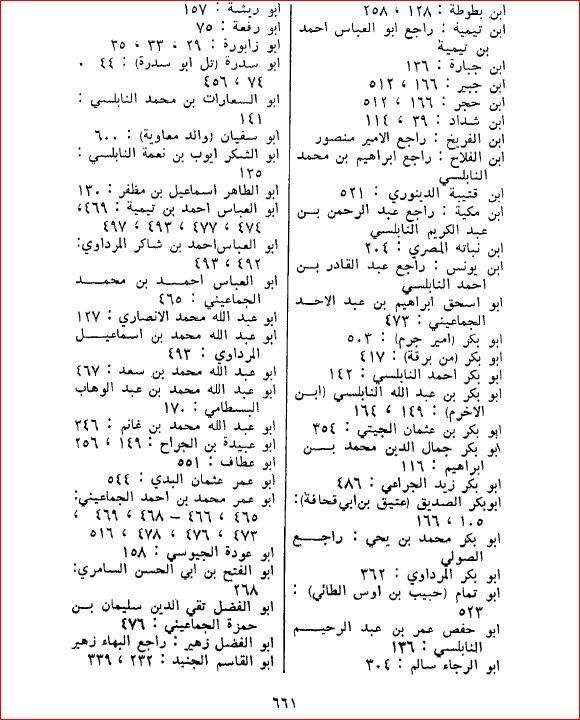 ابن بطوطة : ١٢٨ ، ٢٥٨
ابن تيمية : راجع ابو العباس احمد
بن تيمية
ابن جبارة : ١٣٦
ابن جبير : ١٦٦ ، ٥١٢
ابن حجر : ١٦٦ ، ٥١٢
ابن شداد : ٣٩ ، ١١٤
ابن الفريخ : راجع الامير منصور
ابن الفلاح : راجع ابراهيم بن محمد
النابلسي
ابن قتيبة الدينوري : ٥٢١
ابن مكية : راجع عبد الرحمن بن
عبد الكريم النابلسي
ابن نباته المصري : ٢٠٤
ابن يونس : راجع عبد القادر بن
احمد النابلسي
ابو اسحق ابراهيم بن عبد الاحد
الجماعيني : ٤٧٣
ابو بكر (امير جرم) : ٥٠٣
ابو بكر (من برقة) : ٤١٧
ابو بكر احمد النابلسي : ١٤٢
ابو بكر بن عبد الله النابلسي (ابن
الاخرم) : ١٤٩ ، ١٦٤
ابو بكر بن عثمان الجيتي : ٣٥٤
ابو بكر جمال الدين محمد بن
ابراهيم : ١١٦
ابو بكر زيد الجراعي : ٤٨٦
ابوبكر الصديق (عتيق بن ابي قحافة):
١٠٥ ، ١٦٦
ابو بكر محمد بن يحي : راجع
الصولي
ابو بكر المرداوي : ٣٦٢
ابو تمام (حبيب بن اوس الطائي) :
٥٢٣
ابو حفص عمر بن عبد الرحيم
النابلسي : ١٣٦
ابو الرجاء سالم : ٣٠٤
ابو ريشة : ١٥٧
ابو رفعة : ٧٥
ابو زابورة : ٢٩ ، ٣٣ ، ٣٥
ابو سدرة (تل ابو سدرة) : ٤٤ ،
٧٤ ، ٤٥٦
ابو السعارات بن محمد النابلسي :
١٤١
ابو سفيان (والد معاوية) : ٦٠٠
ابو الشكر ايوب بن نعمة النابلسي :
١٣٥
ابو الطاهر اسماعيل بن مظفر : ١٣٠
ابو العباس احمد بن تيمية : ٤٦٩،
٤٧٤ ، ٤٧٧ ، ٤٩٣ ، ٤٩٧
ابو العباس احمد بن شاكر المرداوي:
٤٩٢ ، ٤٩٣
ابو العباس احمد بن محمد
الجماعيني : ٤٦٥
ابو عبد الله محمد الانصاري : ١٢٧
ابو عبد الله محمد بن اسماعيل
المرداوي : ٤٩٣
ابو عبد الله محمد بن سعد : ٤٦٧
ابو عبد الله محمد بن عبد الوهاب
البسطامي : ١٧٠
ابو عبد الله محمد بن غانم : ٣٤٦
ابو عبيدة بن الجراح : ١٤٩ ، ٢٥٦
ابو عطاف : ٥٥١
ابو عمر عثمان البدي : ٥٤٤
ابو عمر محمد بن احمد الجماعيني:
٤٦٥ ، ٤٦٦ - ٤٦٨ ، ٤٦٩ ،
٤٧٣ ، ٤٧٦ ، ٤٧٨ ، ٥١٦
ابو عودة الجيوسي : ١٥٨
ابو الفتح بن ابي الحسن السامري:
٢٦٨
ابو الفضل تقي الدين سليمان بن
حمزة الجماعيني : ٤٧٦
ابو الفضل زهير : راجع البهاء زهير
ابو القاسم الجنيد : ٢٣٢ ، ٣٣٩
٦٦١